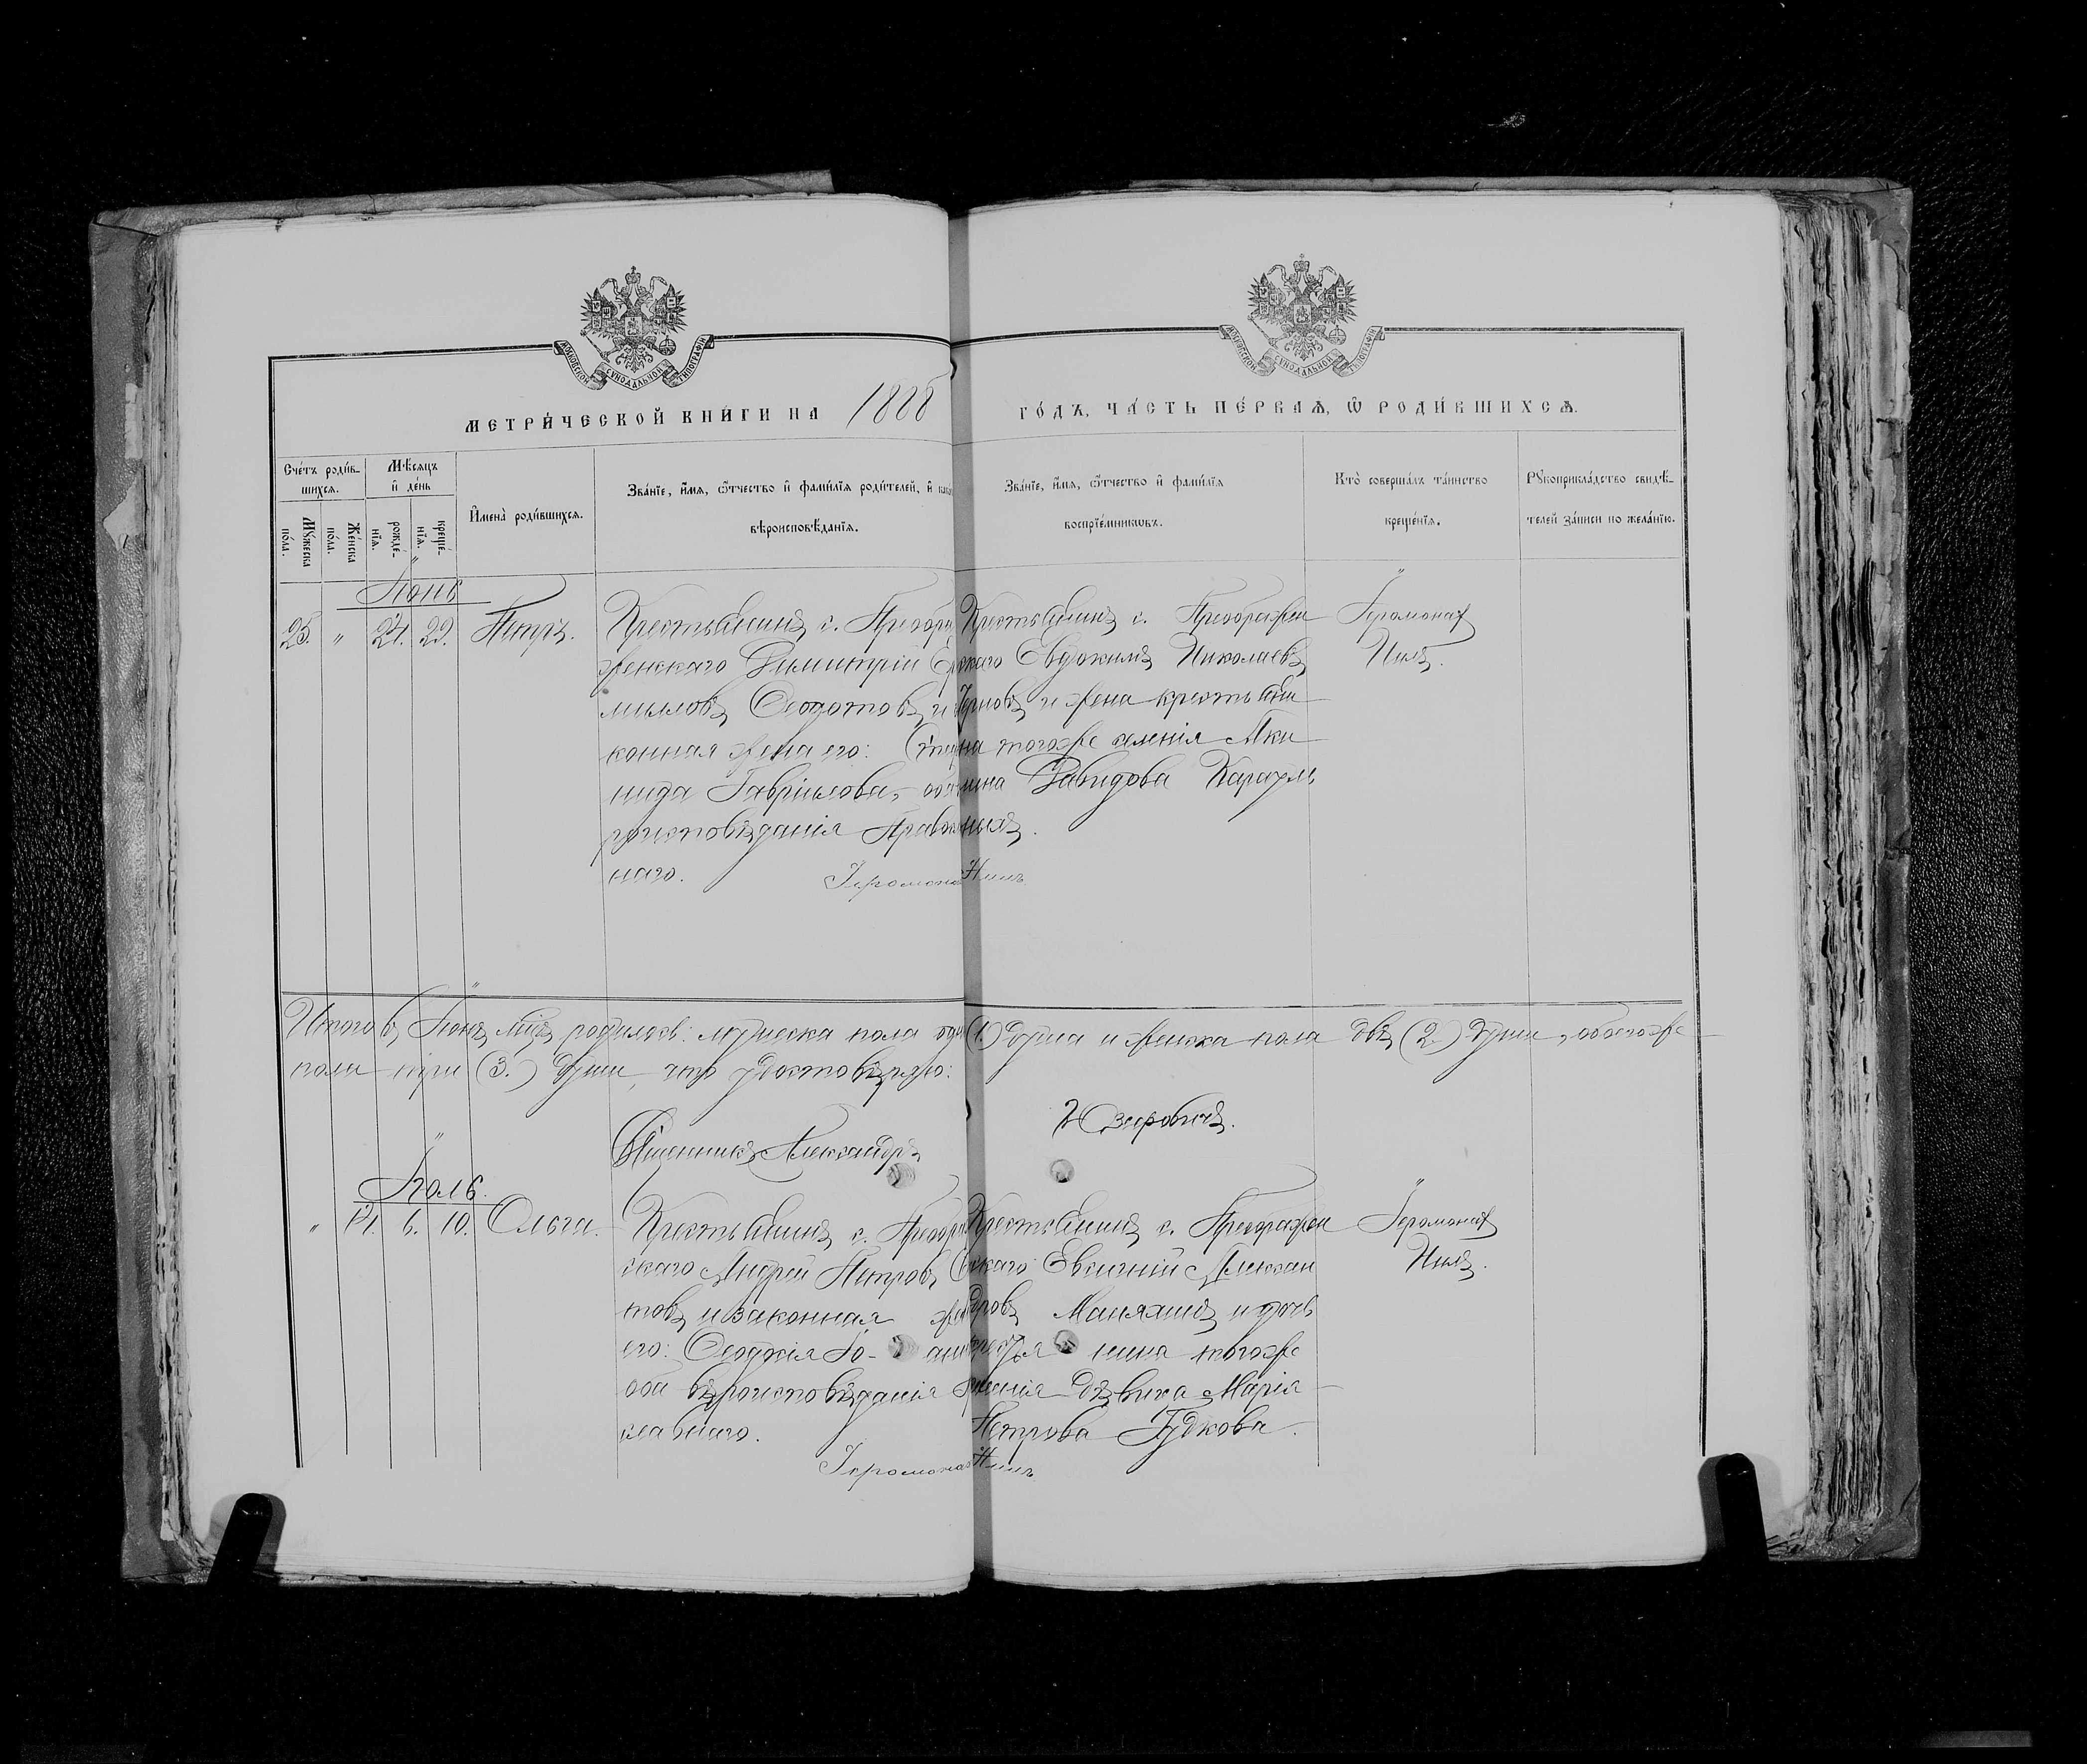 МОСКОВСКОЙ СУНОДАЛЬНОЙ ТИПОГРАФІИ
МОСКОВСКОЙ СУНОДАЛЬНОЙ ТИПОГРАФІИ
МЕТРИ́ЧЕСКОЙ КНИ́ГИ НА 1888
ГО́ДЪ, ЧА́СТЬ ПЕ́РВАѦ, Ѡ РОДИ́ВШИХСѦ.
Сче́тъ роди́вшихсѧ.
Мѣ́сяцъ и҆ де́нь
Мꙋ́жеска по́ла.
Же́нска по́ла.
рожде́нїѧ.
креще́нїѧ.
И҆мена̀ роди́вшихсѧ.
Зва́нїе, и҆́мѧ, ѻ҆́тчество и҆ фами́лїѧ роди́телей, и҆
вѣроисповѣ́данїѧ.
Зва́нїе, и҆́мѧ, ѻ҆́тчество и҆ фами́лїѧ
воспрїе́мникѡвъ.
Кто̀ соверша́лъ та́инство
креще́нїѧ.
Рꙋкоприкла́дство свидѣ́-
телей за́писи по жела́нїю.
Іюнь
25. " 24. 29. Петръ.
Крестьянинъ с. Преобра
женскаго Димитрій
миловъ Ѳедотовъ и
конная жена его:
нида Гавріилова,
роисповѣданія Правос
наго.
Іеромонахъ Нилъ
Крестьянинъ с. Преображен
скаго Евдокимъ Николаевъ
Черновъ и жена крестьяни
на тогоже селенія Аки
лина Давидова Карауль
ныхъ.
Іеромонахъ
Нилъ.
Итого въ Іюнѣ м-цѣ родилось: мужеска пола одна (1.) душа и женска пола двѣ (2.) души, обоегоже
пола три (3.) души, что удостовѣряю:
Священникъ Александръ
Юзефовичъ.
Іюль.
" 6. 10. Ольга.
Крестьянинъ с. Преобра
скаго Андрей Петровъ
товъ и законная
его: Ѳеодосія
оба вѣроисповѣданія
славнаго.
Іеромонахъ Нилъ
Крестьянинъ с. Преображен
скаго Евгеній Алексан
дровъ и дочь
крестьянина тогоже
селенія дѣвица Марія
Петрова Гудкова.
Іеромонахъ
Нилъ.